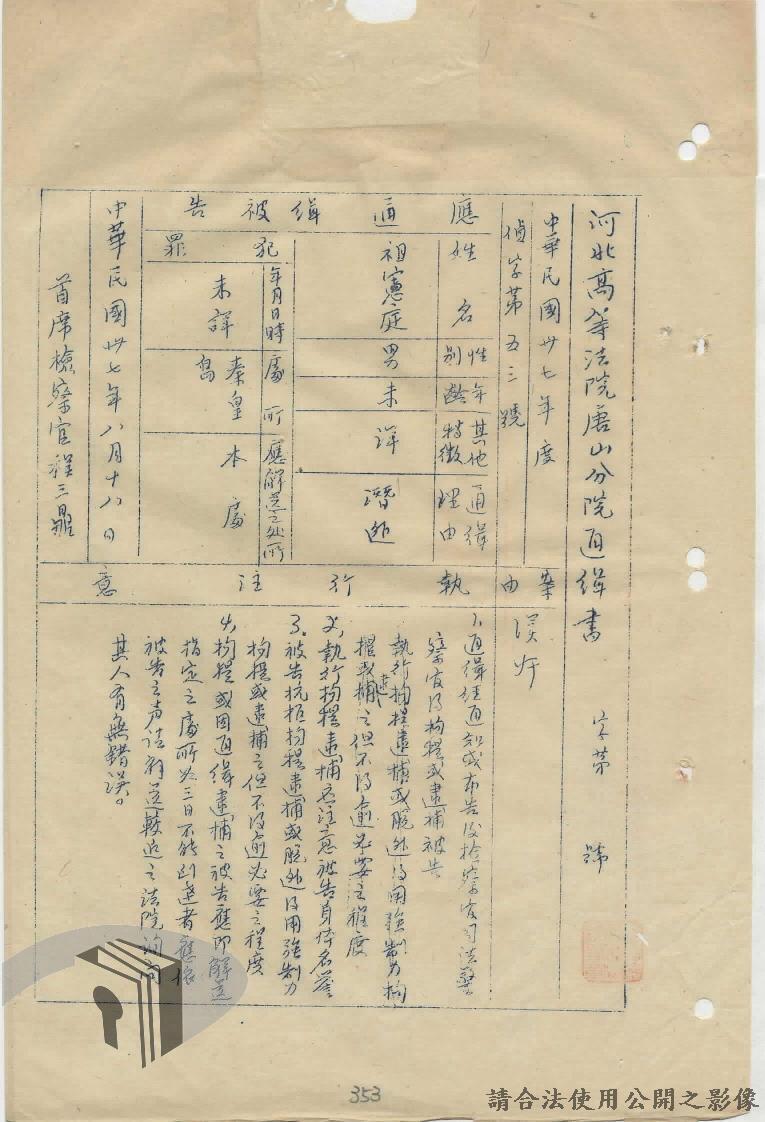 河北高等法院唐山分院通緝書 字第 號
中華民國卅七年度
偵字第五三號
案由 漢奸
應通緝被告
姓名 性別 年齡 其他特徵 通緝理由
祖憲庭 男 未詳 潛逃
犯罪
年月日時 處所 應解送之處所
未詳 秦皇島 本處
中華民國卅七年八月十八日
首席檢察官程三
執行注意
1、通緝經通知或布告後檢察官司法警
察官得拘提或逮捕被告
執行拘提逮捕或脫逃得用強制力拘
提或逮捕之但不得逾必要之程度
2、執行拘提逮捕應注意被告身体名譽
3、被告抗拒拘提逮捕或脫逃得用強制力
拘提或逮捕之但不得逾必要之程度
4、拘提或因通緝逮捕之被告應即解送
指定之處所如三日不能到達者應依
被告之声請解送較近之法院詢問
其人有無錯誤。
353
請合法使用公開之影像